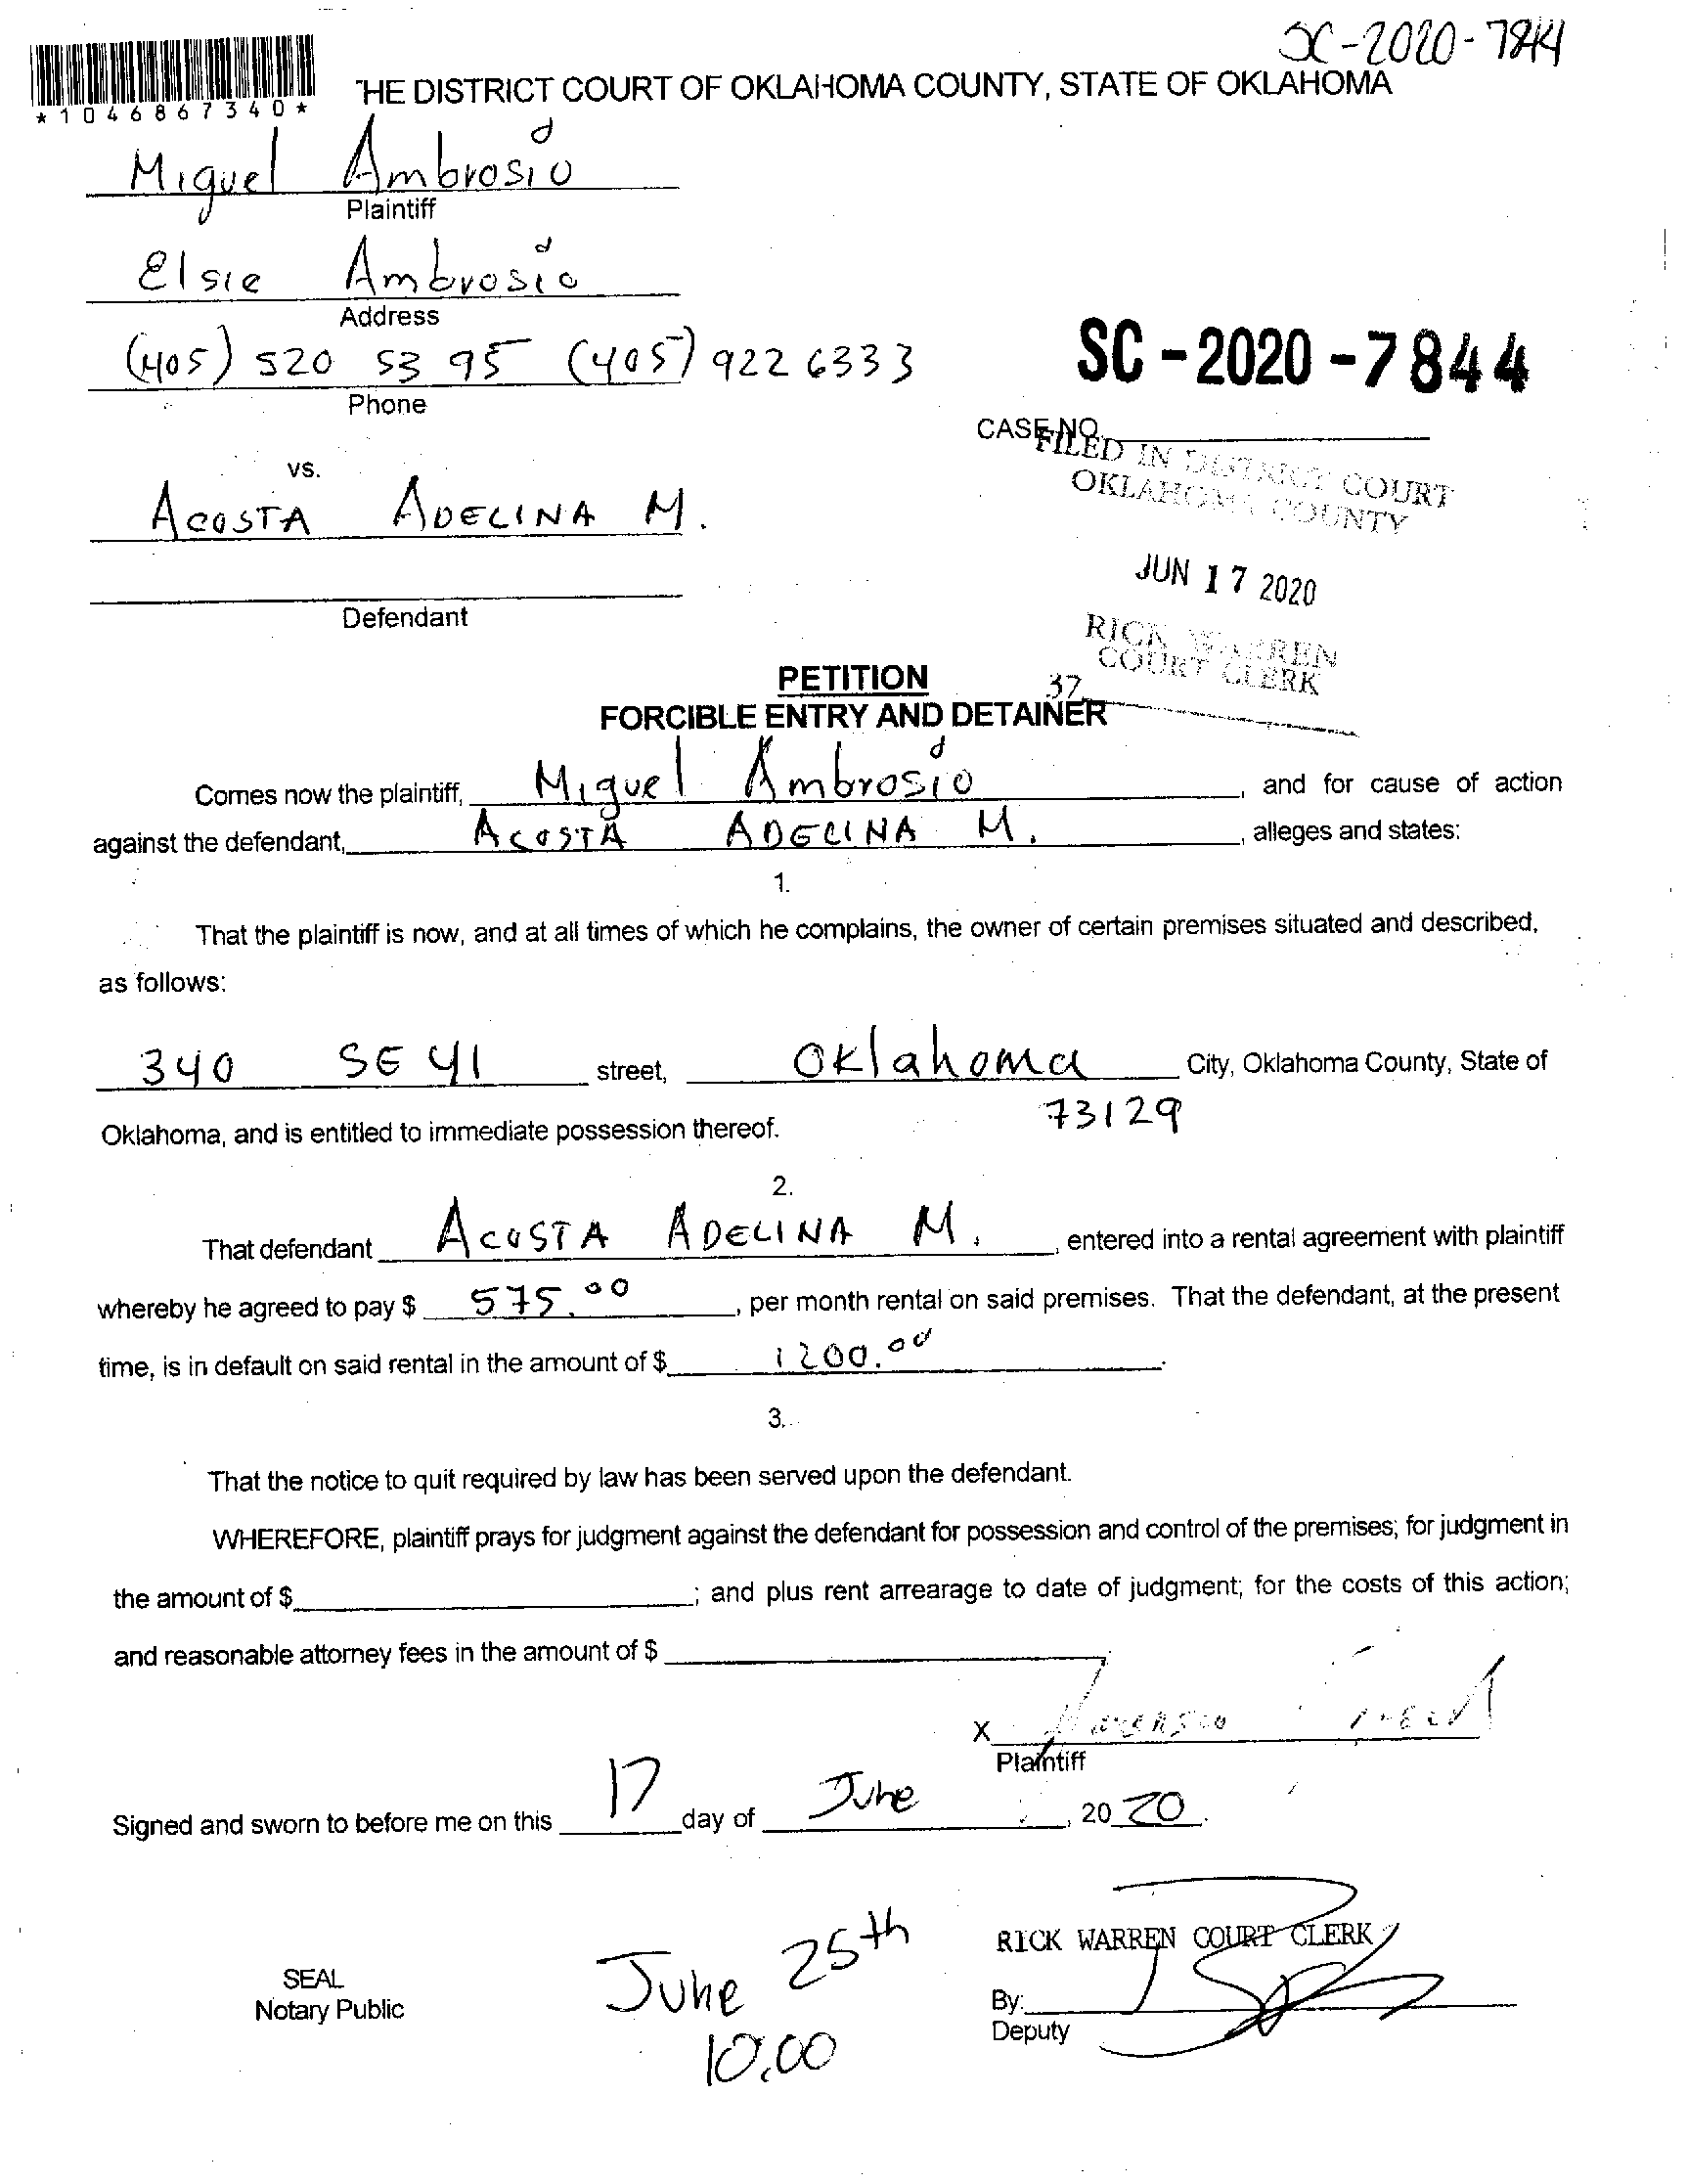 SC-2020-7844
THE DISTRICT COURT OF OKLAHOMA COUNTY, STATE OF OKLAHOMA
*1046867340*
Miguel Ambrosio
Plaintiff
Elsie Ambrosio
Address
(405) 520 53 95 (405) 922 6333
Phone
SC-2020-7844
CASE NO.
FILED IN DISTRICT COURT
OKLAHOMA COUNTY
vs.
ACOSTA ADELINA M.
JUN 17 2020
Defendant
RICK WARREN
COURT CLERK
37
PETITION
FORCIBLE ENTRY AND DETAINER
Comes now the plaintiff, Miguel Ambrosio, and for cause of action
against the defendant, ACOSTA ADELINA M., alleges and states:
1.
That the plaintiff is now, and at all times of which he complains, the owner of certain premises situated and described,
as follows:
340 SE 41 street, Oklahoma City, Oklahoma County, State of
73129
Oklahoma, and is entitled to immediate possession thereof.
2.
That defendant ACOSTA ADELINA M., entered into a rental agreement with plaintiff
whereby he agreed to pay $ 575.00, per month rental on said premises. That the defendant, at the present
time, is in default on said rental in the amount of $ 1200.00.
3.
That the notice to quit required by law has been served upon the defendant.
WHEREFORE, plaintiff prays for judgment against the defendant for possession and control of the premises; for judgment in
the amount of $ ; and plus rent arrearage to date of judgment; for the costs of this action;
and reasonable attorney fees in the amount of $
X
Plaintiff
Signed and sworn to before me on this 17 day of June, 2020.
RICK WARREN COURT CLERK
SEAL
Notary Public
June 25th
10:00
By:
Deputy